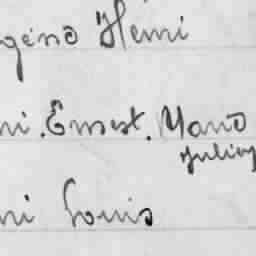 gèno Henri
ni. Ernest. Mano
Julien
ni Louis